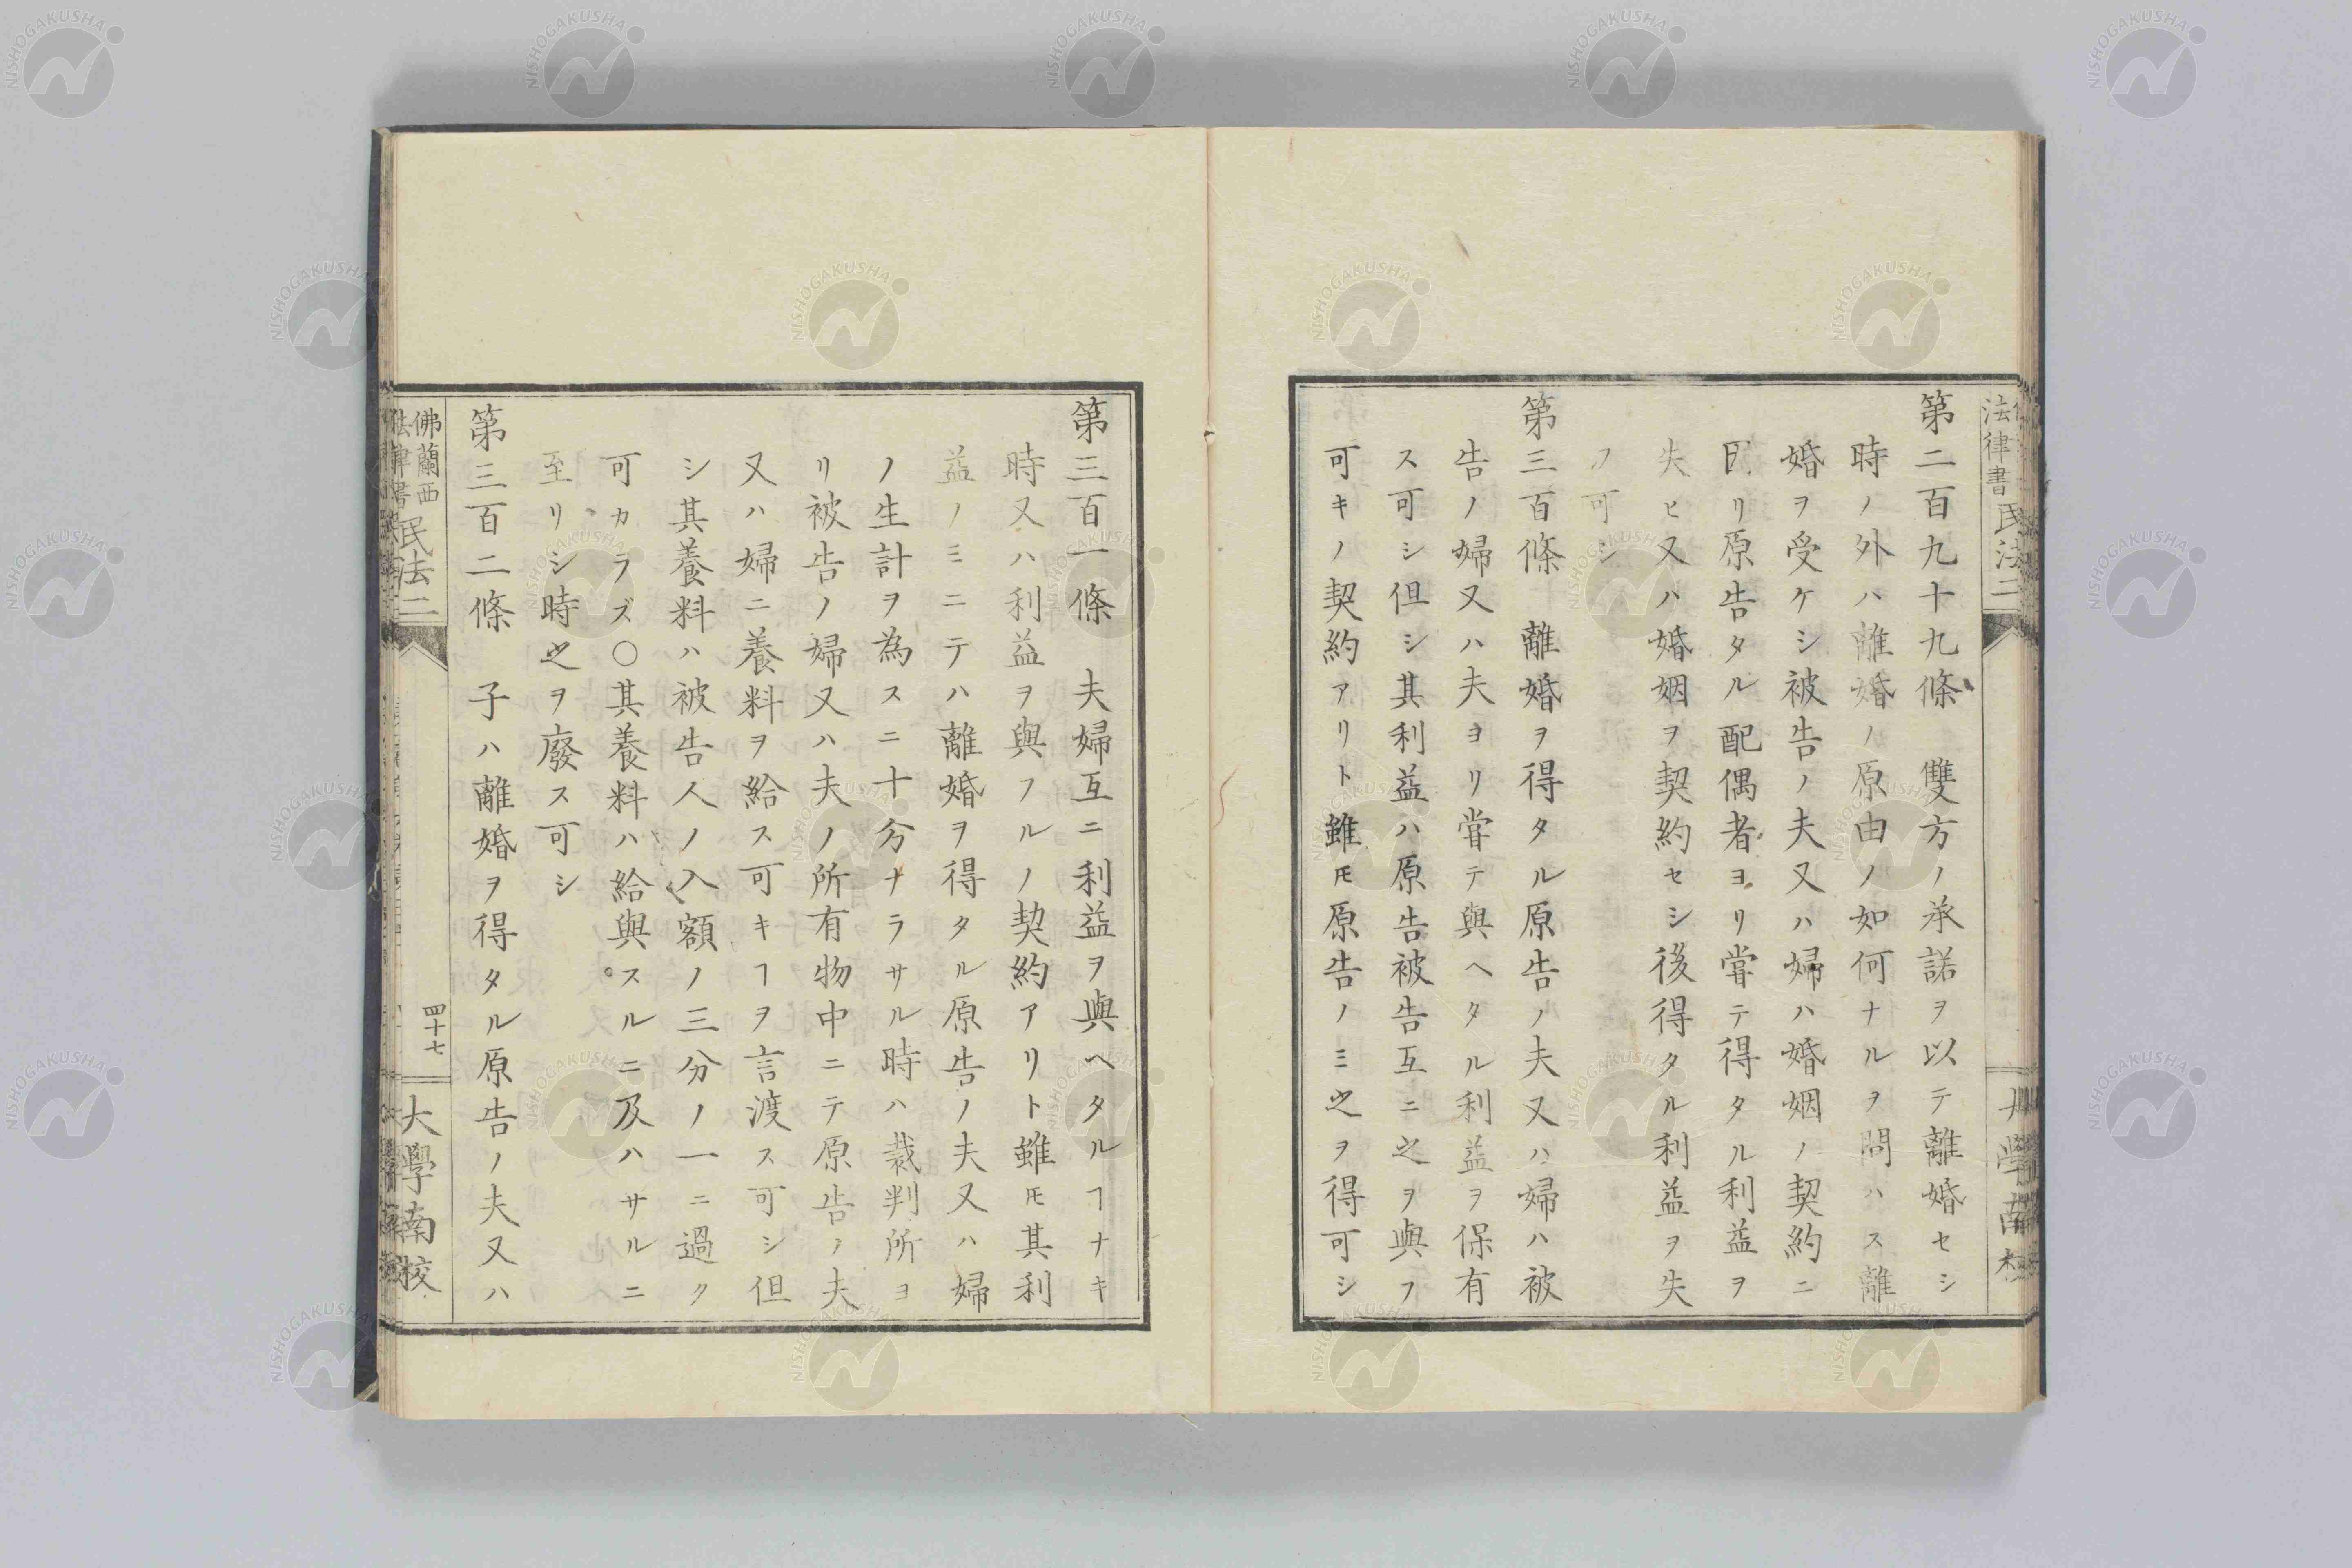 第二百九十九條　雙方ノ承諾ヲ以テ離婚セシ
時ノ外ハ離婚ノ原由ノ如何ナルヲ問ハス離
婚ヲ受ケシ被告ノ夫又ハ婦ハ婚姻ノ契約ニ
因リ原告タル配偶者ヨリ甞テ得タル利益ヲ
失ヒ又ハ婚姻ヲ契約セシ後得タル利益ヲ失
フ可シ
第三百條　離婚ヲ得タル原告ノ夫又ハ婦ハ被
告ノ婦又ハ夫ヨリ甞テ與ヘタル利益ヲ保有
ス可シ但シ其利益ハ原告被告互ニ之ヲ與フ
可キノ契約アリト雖㆓原告ノミ之ヲ得可シ
第三百一條　夫婦互ニ利益ヲ與ヘタルヿナキ
時又ハ利益ヲ與フルノ契約アリト雖𪜈其利
益ノミニテハ離婚ヲ得タル原告ノ夫又ハ婦
ノ生計ヲ為スニ十分ナラサル時ハ裁判所ヨ
リ被告ノ婦又ハ夫ノ所有物中ニテ原告ノ夫
又ハ婦ニ養料ヲ給ス可キヿヲ言渡ス可シ但
シ其養料ハ被告人ノ入額ノ三分ノ一ニ過ク
可カラズ〇其養料ハ給與スルニ及ハサルニ
至リシ時之ヲ廢ス可シ
第三百二條　子ハ離婚ヲ得タル原告ノ夫又ハ
佛蘭西
法律書
民法二
四十七
大學南校
法律書
民法二
大學南校
NISHOGAKUSHA